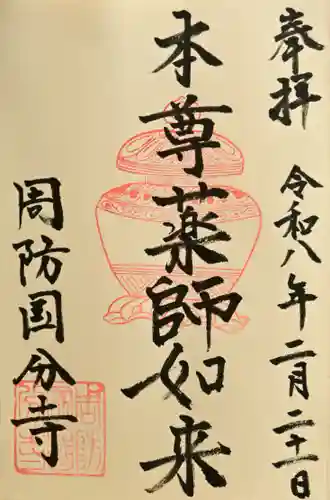 奉拝
令和八年二月二十一日
本尊薬師如来
周防国分寺